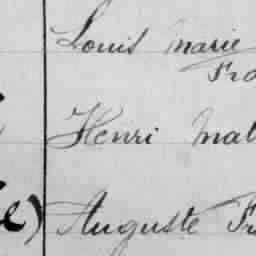 Louis Marie
Fra
Henri Mat
e) Auguste Fr